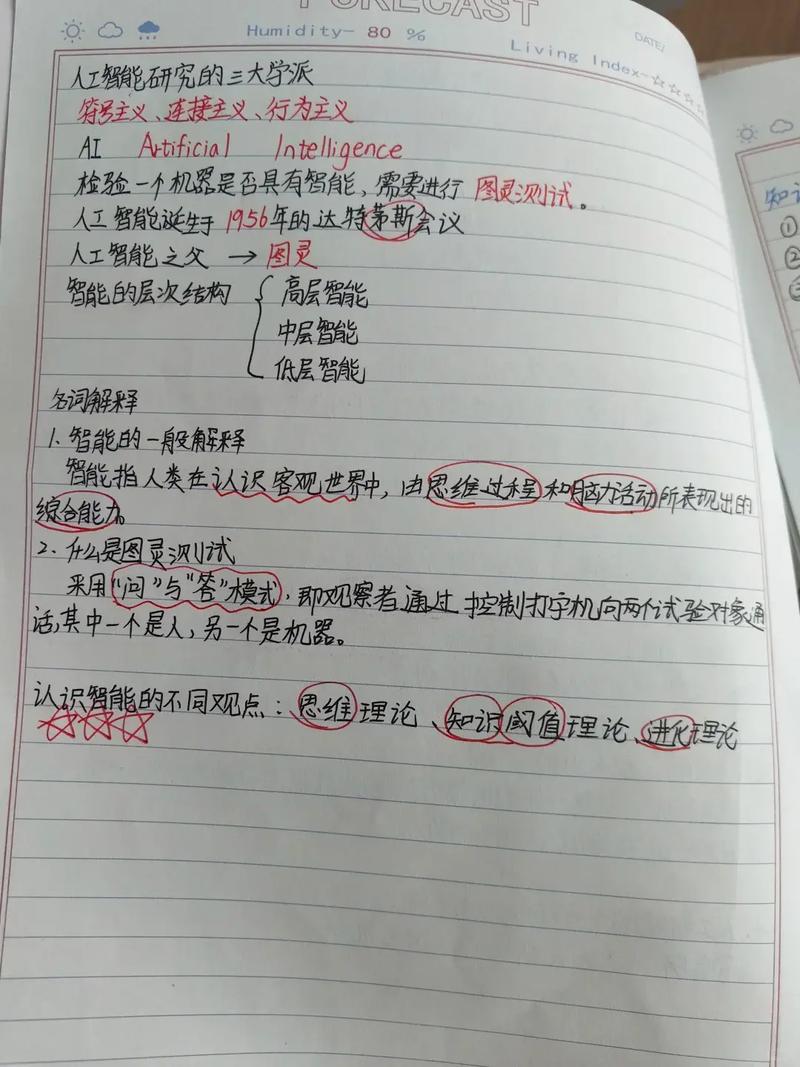 FORECAST
Humidity- 80 %
Living Index-☆☆☆☆
DATE/
人工智能研究的三大学派
符号主义、连接主义、行为主义
AI Artificial Intelligence
检验一个机器是否具有智能,需要进行 图灵测试。
人工智能诞生于1956年的达特茅斯会议
人工智能之父 → 图灵
智能的层次结构 { 高层智能
中层智能
低层智能
名词解释
1. 智能的一般解释
智能指人类在认识客观世界中,由思维过程和脑力活动所表现出的
综合能力。
2. 什么是图灵测试
采用“问”与“答”模式,即观察者通过控制打字机向两个试验对象通
话,其中一个是人,另一个是机器。
认识智能的不同观点:思维理论、知识阈值理论、进化理论
☆☆☆
知
①
②
③